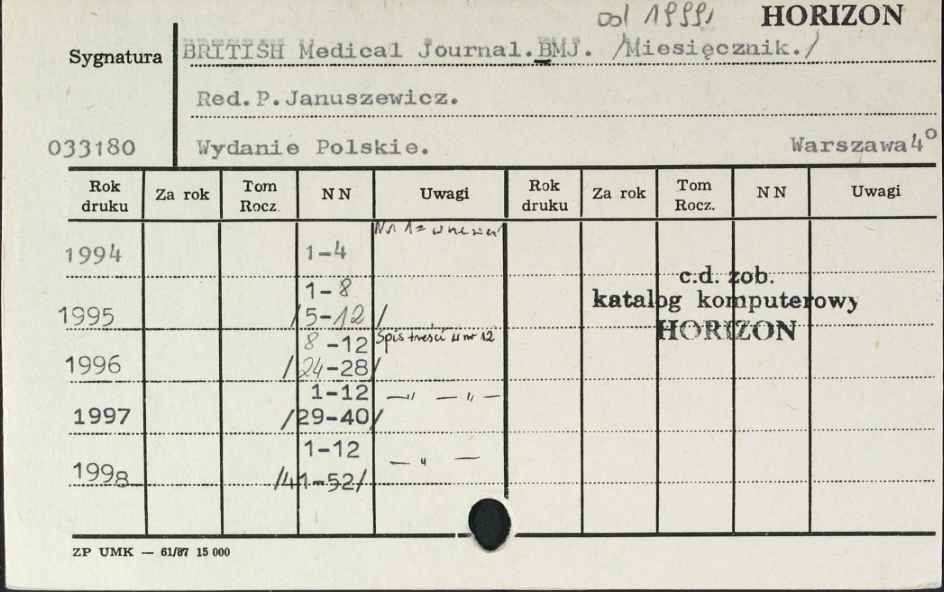 od 1999, HORIZON
Sygnatura BRITISH Medical Journal. BMJ. /Miesięcznik./
Red. P. Januszewicz.
033180 Wydanie Polskie. Warszawa 4°
Rok druku Za rok Tom Rocz. N N Uwagi Rok druku Za rok Tom Rocz. N N Uwagi
Nr 1=
1994 1-4
1-8
1995 /5-12/
8-12 Spis treści w nr 12
1996 /24-28/
1-12 —"— —"—
1997 /29-40/
1-12 —"—
1998 /41-52/
c.d. zob.
katalog komputerowy
HORIZON
ZP UMK — 61/87 15 000